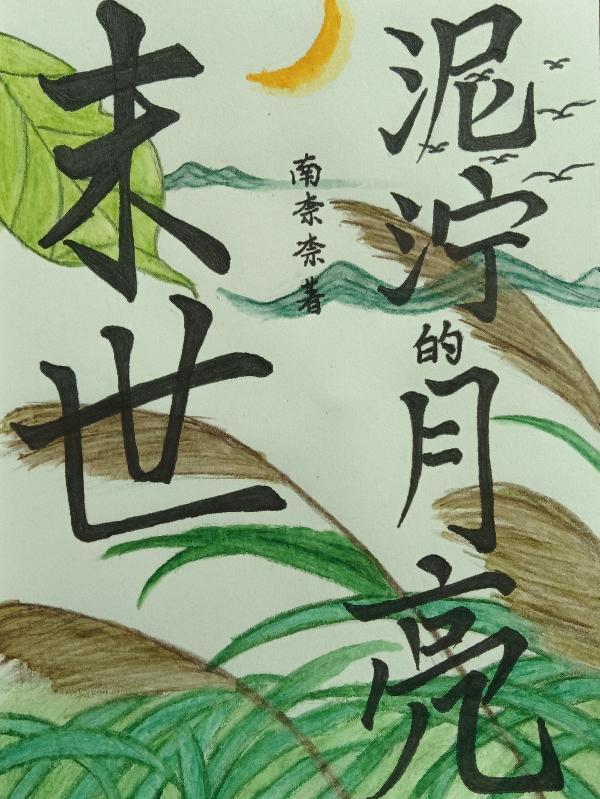 泥泞的月亮
南奈奈著
末世